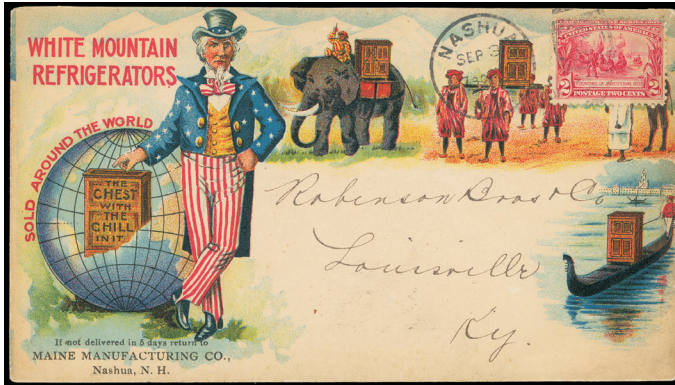 WHITE MOUNTAIN
REFRIGERATORS
SOLD AROUND THE WORLD
THE
CHEST
WITH
THE
CHILL
IN IT
NASHUA
SEP
UNITED STATES OF AMERICA
FOUNDING OF JAMESTOWN
2 POSTAGE TWO CENTS 2
Robinson Bros & Co
Louisville
Ky.
If not delivered in 5 days return to
MAINE MANUFACTURING CO.,
Nashua, N. H.